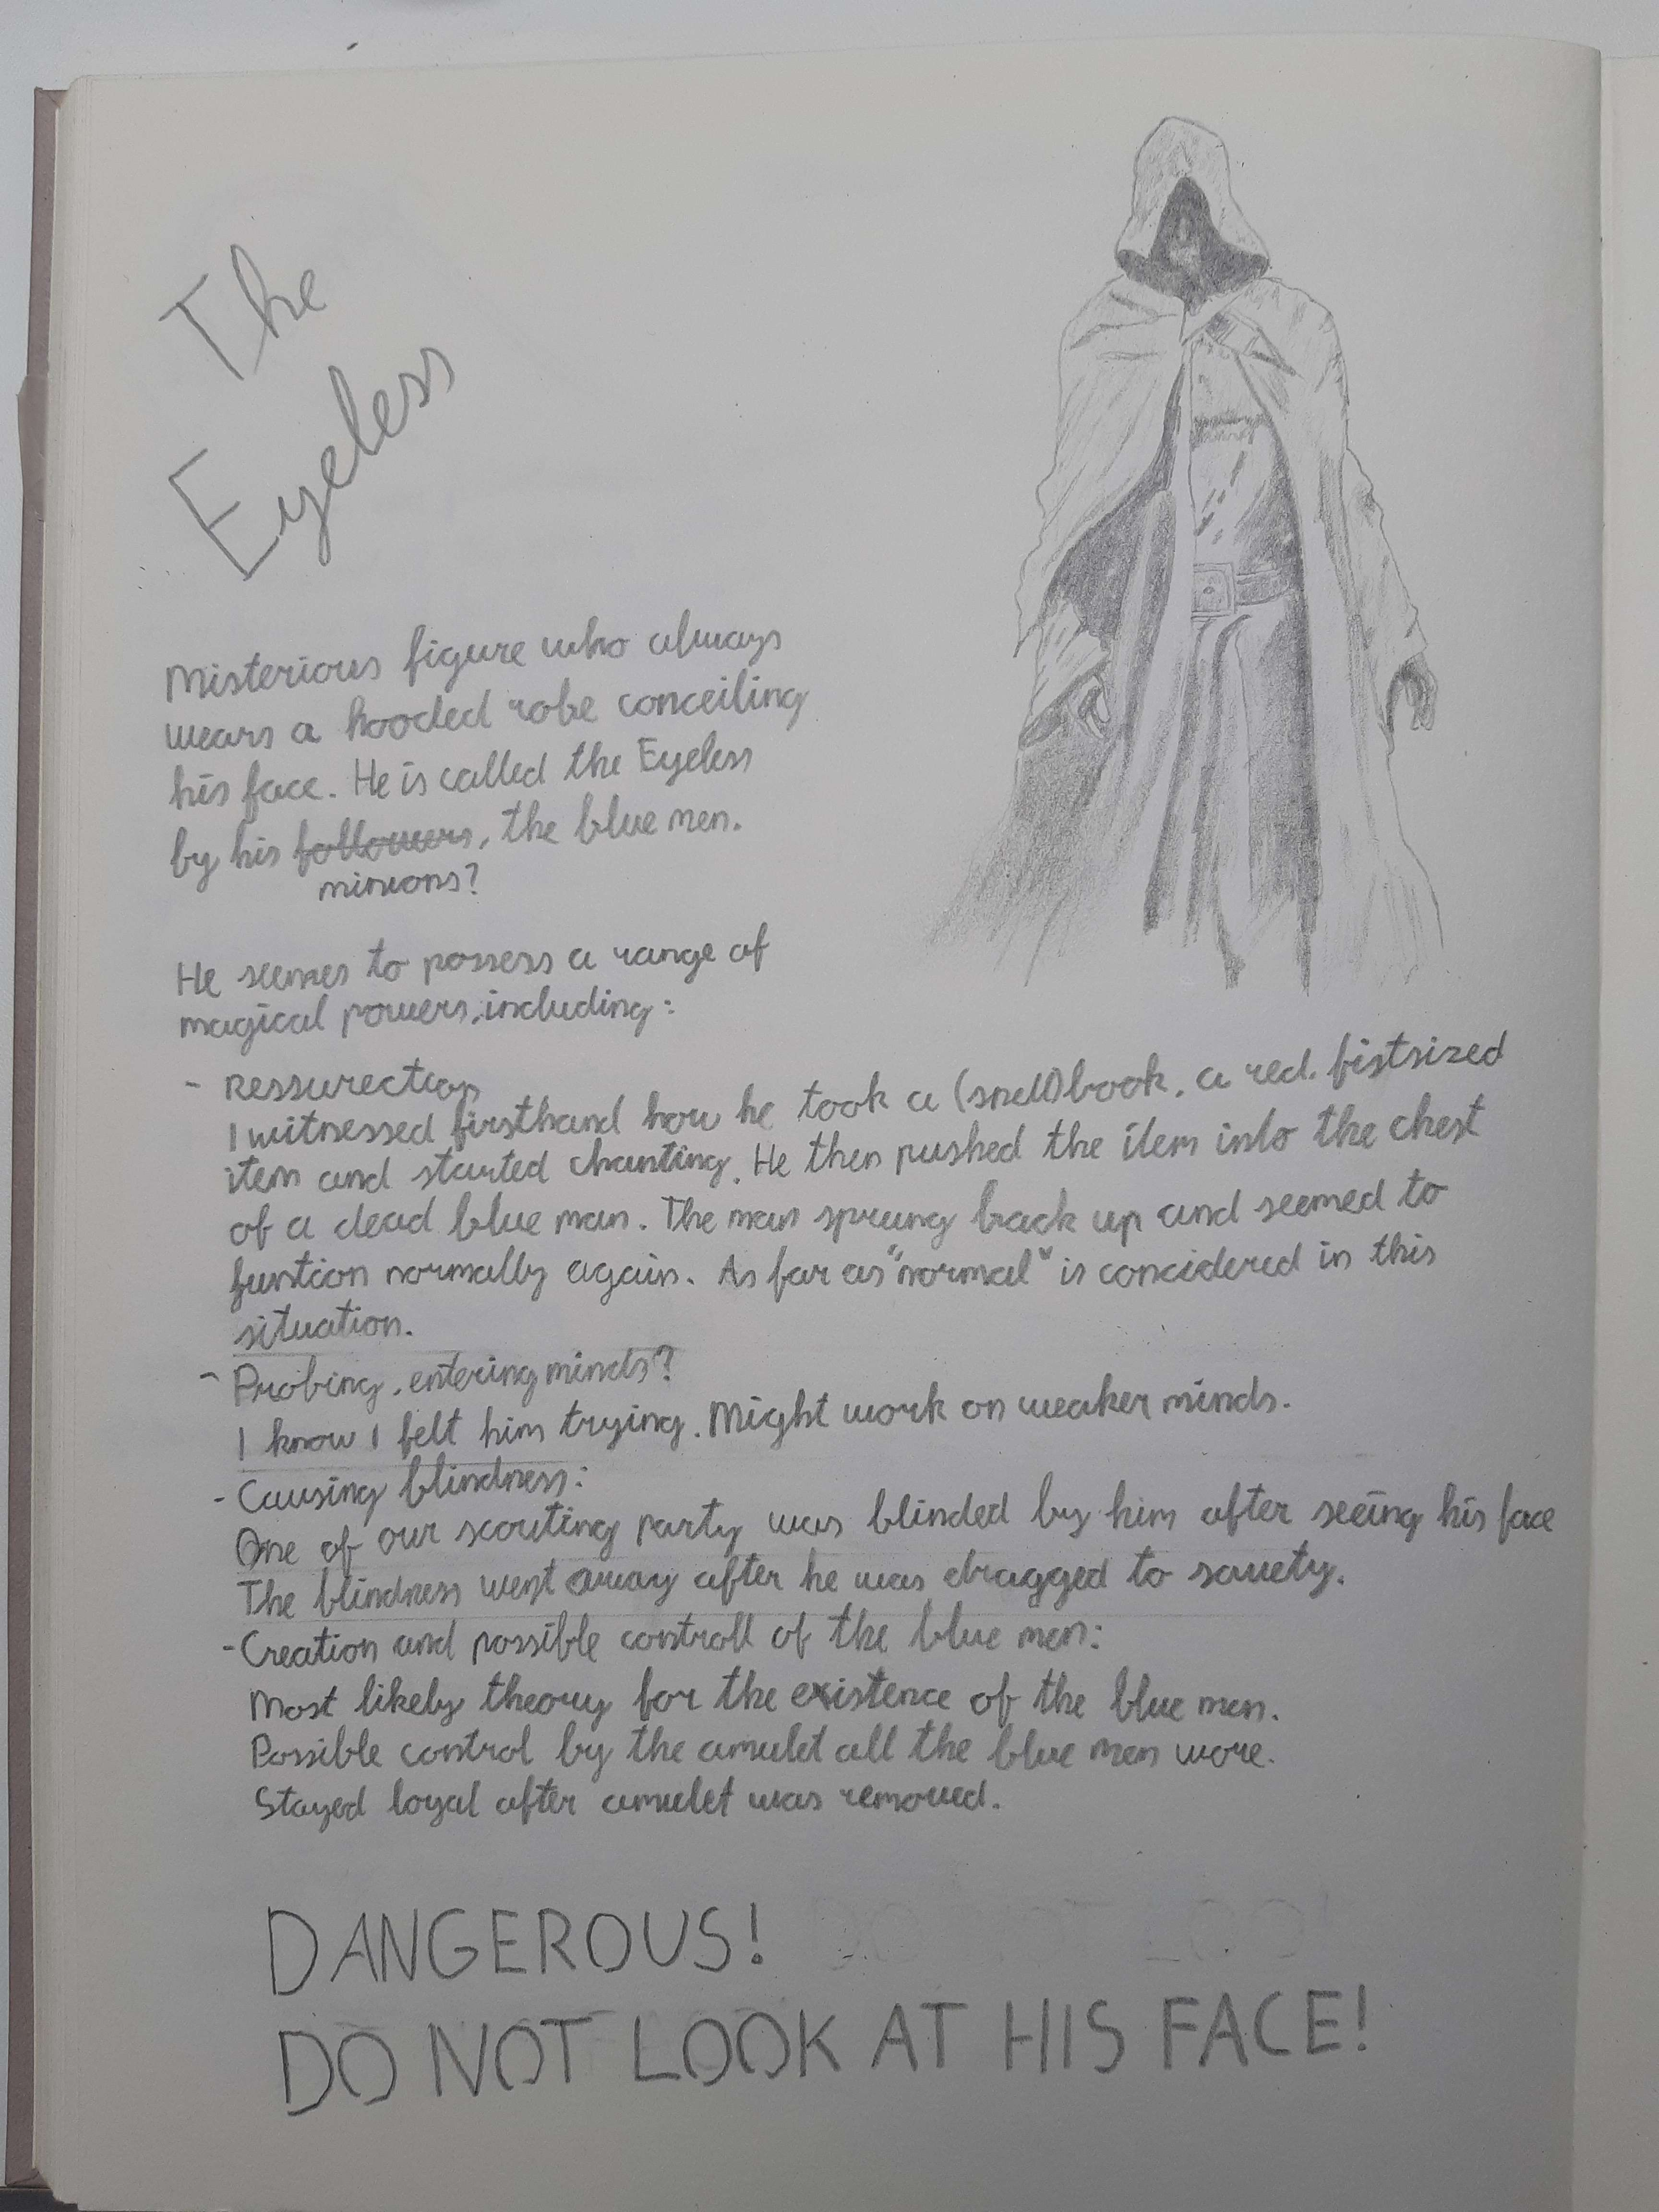 The
Eyeless
Misterious figure who always
wears a hooded robe conceiling
his face. He is called the Eyeless
by his followers, the blue men.
minions?
He seemes to possess a range of
magical powers, including:
- Ressurection
I witnessed firsthand how he took a (spell)book, a red, fistsized
item and started chanting. He then pushed the item into the chest
of a dead blue man. The man sprung back up and seemed to
funtion normally again. As far as "normal" is concidered in this
situation.
- Probing, entering minds?
I know I felt him trying. Might work on weaker minds.
- Causing blindness:
One of our scouting party was blinded by him after seeing his face
The blindness went away after he was dragged to savety.
- Creation and possible controll of the blue men:
Most likely theory for the existence of the blue men.
Possible control by the amulet all the blue men wore.
Stayed loyal after amulet was removed.
DANGEROUS!
DO NOT LOOK AT HIS FACE!